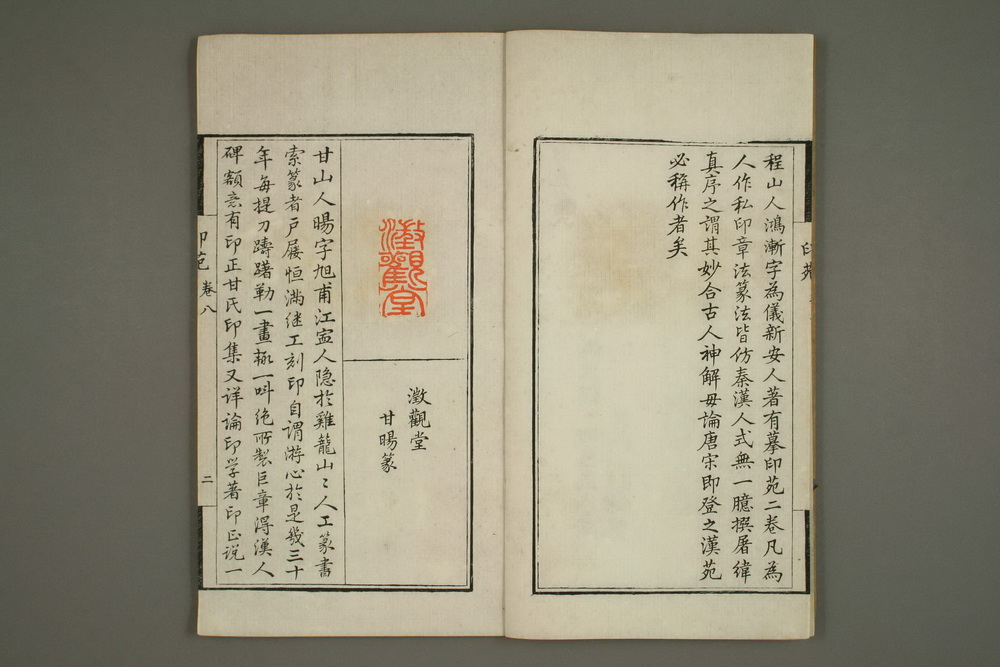 程山人鴻漸字為儀新安人著有摹印苑二卷凡為
人作私印章法篆法皆仿秦漢人式無一臆撰屠緯
真序之謂其妙合古人神解毋論唐宋即登之漢苑
必稱作者矣
印苑
澂觀堂
澂觀堂
甘暘篆
甘山人暘字旭甫江寍人隐於雞龍山〻人工篆書
索篆者戶屨恒滿继工刻印自谓游心於是幾三十
年每提刀躊躇勒一畫輒一叫绝所製巨章得漢人
碑额意有印正甘氏印集又详論印学著印正说一
印苑 卷八
二